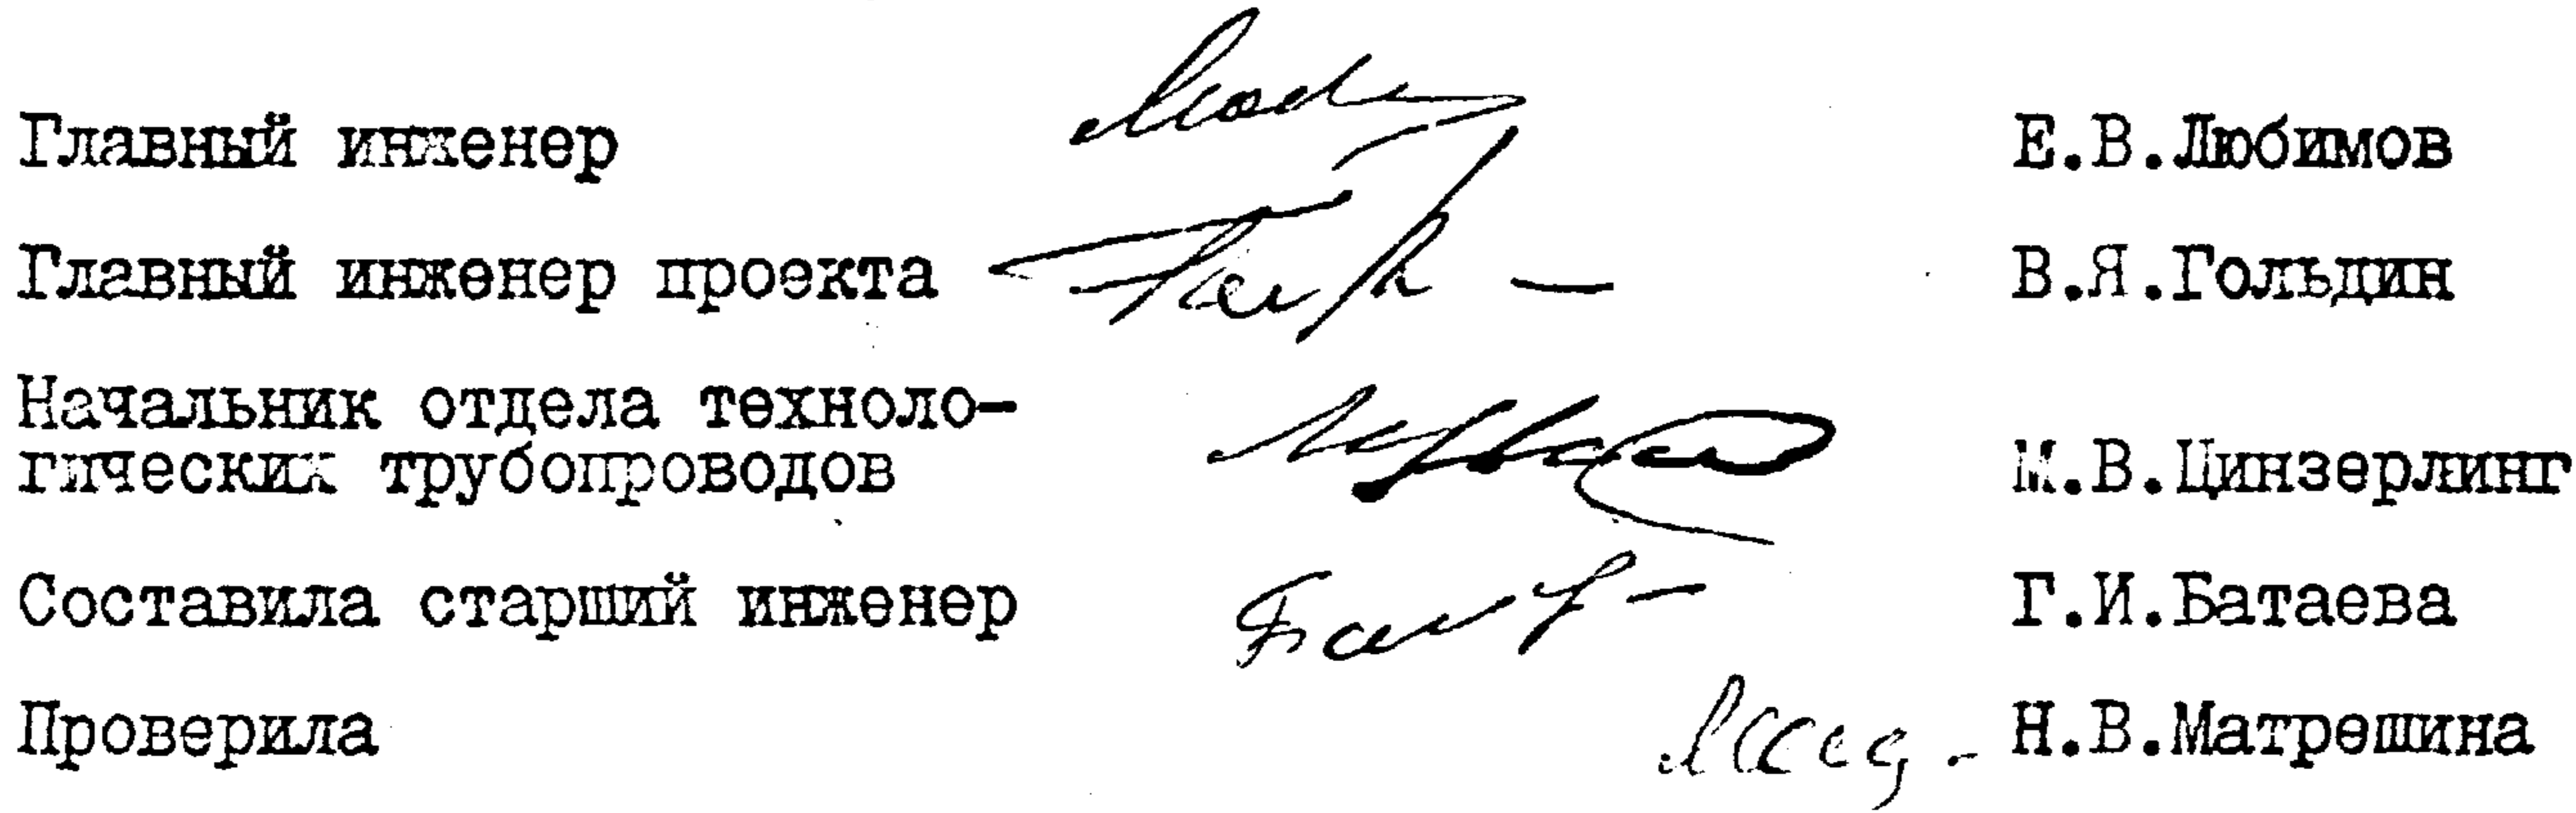 Главный инженер Е.В.Любимов
Главный инженер проекта В.Я.Гольдин
Начальник отдела техноло-
гических трубопроводов М.В.Цинзерлинг
Составила старший инженер Г.И.Батаева
Проверила Н.В.Матрешина